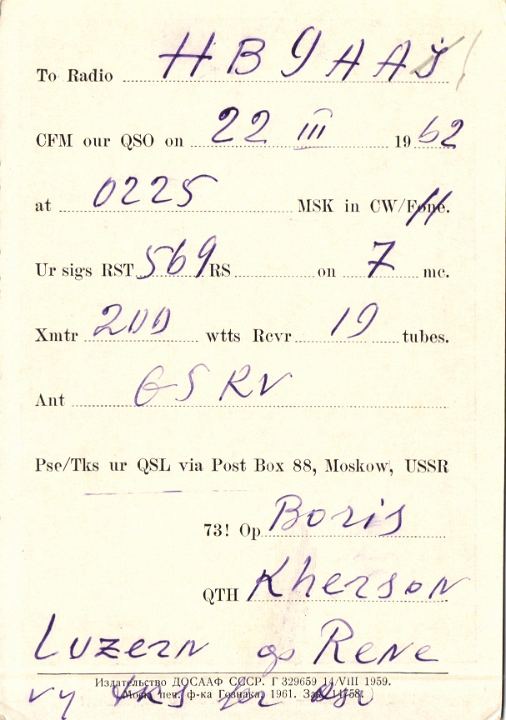 To Radio HB9AAI
CFM our QSO on 22 III 1962
at 0225 MSK in CW/Fone.
Ur sigs RST 569 RS on 7 mc.
Xmtr 200 wtts Rcvr 19 tubes.
Ant G5RV
Pse/Tks ur QSL via Post Box 88, Moskow, USSR
73! Op Boris
QTH Kherson
Luzern Rene
Издательство ДОСААФ СССР. Г 329659 14/VIII 1959.
Моск. печ. ф-ка Гознака. 1961. Зак. 14758.
vy tks for QSO